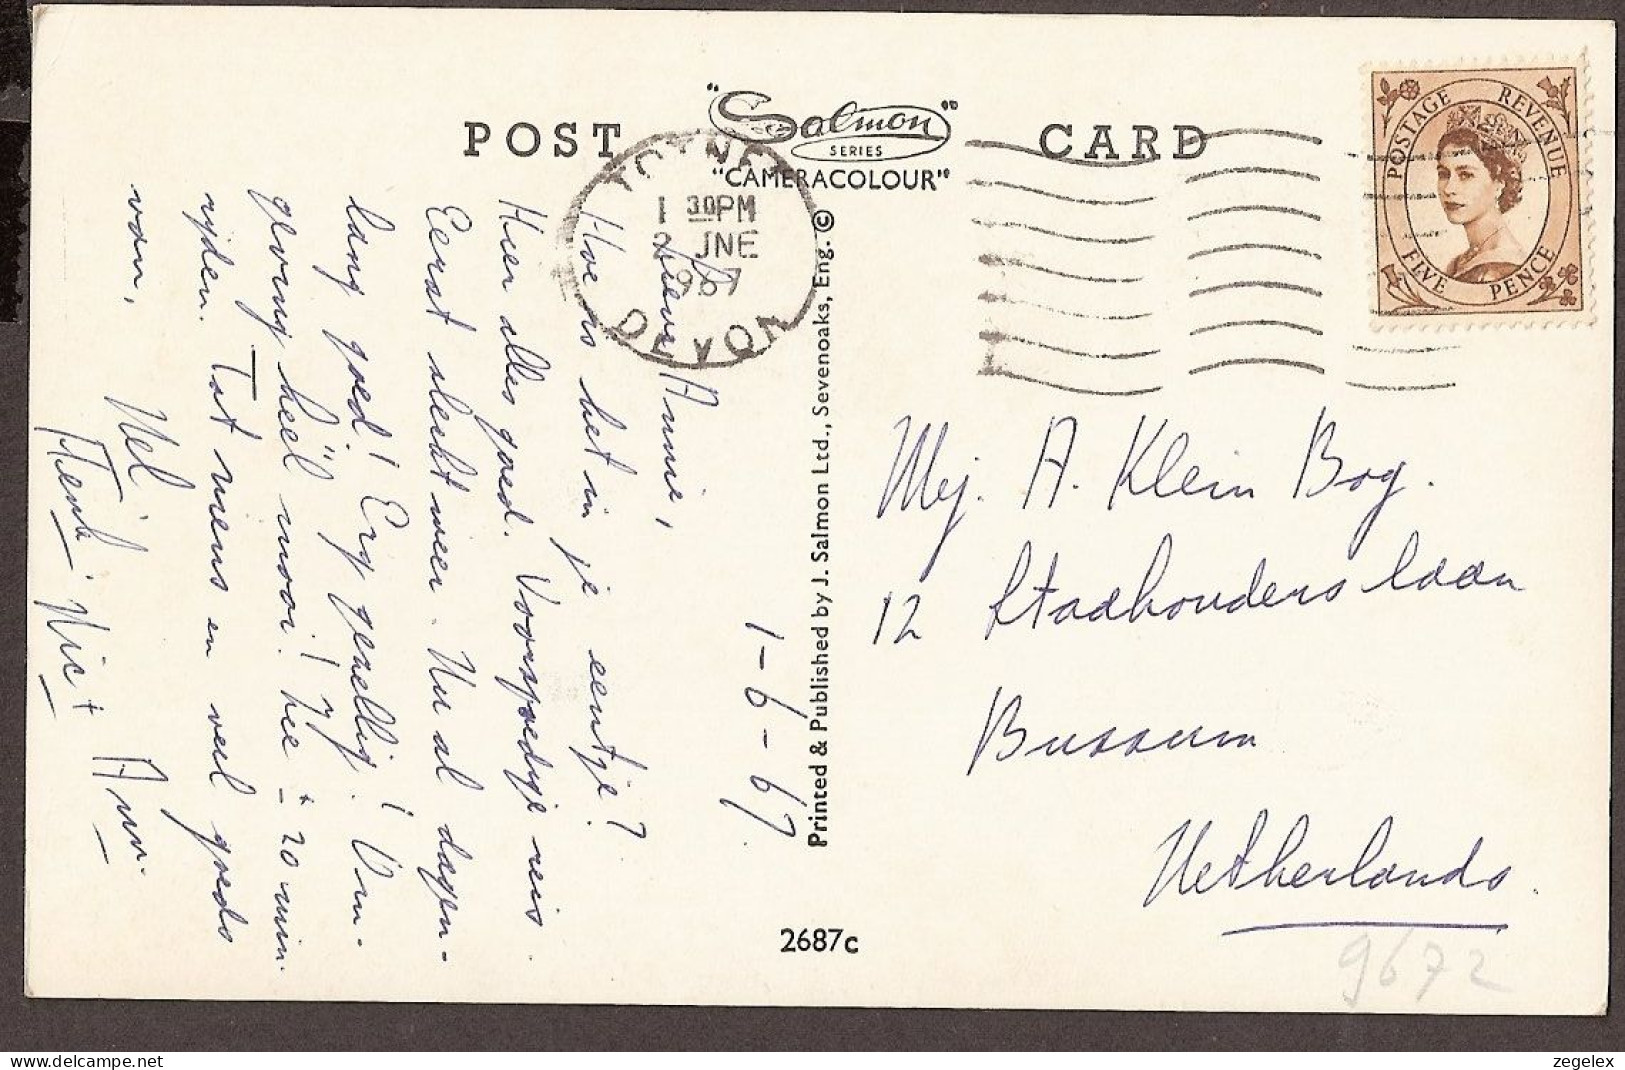 POST CARD
"Salmon"
SERIES
"CAMERACOLOUR"
TOTNES
1 30PM
2 JNE
1967
DEVON
POSTAGE REVENUE
FIVE PENCE
1-6-67
Lieve Annie,
Hoe is het in je eentje?
Hier alles goed. Voorspoedige reis.
Eerst slecht weer. Nu al dagen-
lang goed! Erg gezellig! Om-
geving heel mooi! Zee ± 20 min.
rijden. Tot ziens en veel goeds
van,
Nel
Henk. Nic + Ann.
Printed & Published by J. Salmon Ltd., Sevenoaks, Eng. ©
2687c
Mej. A. Klein Bog.
12 Stadhouderslaan
Bussum
Netherlands.
9672
zegelex